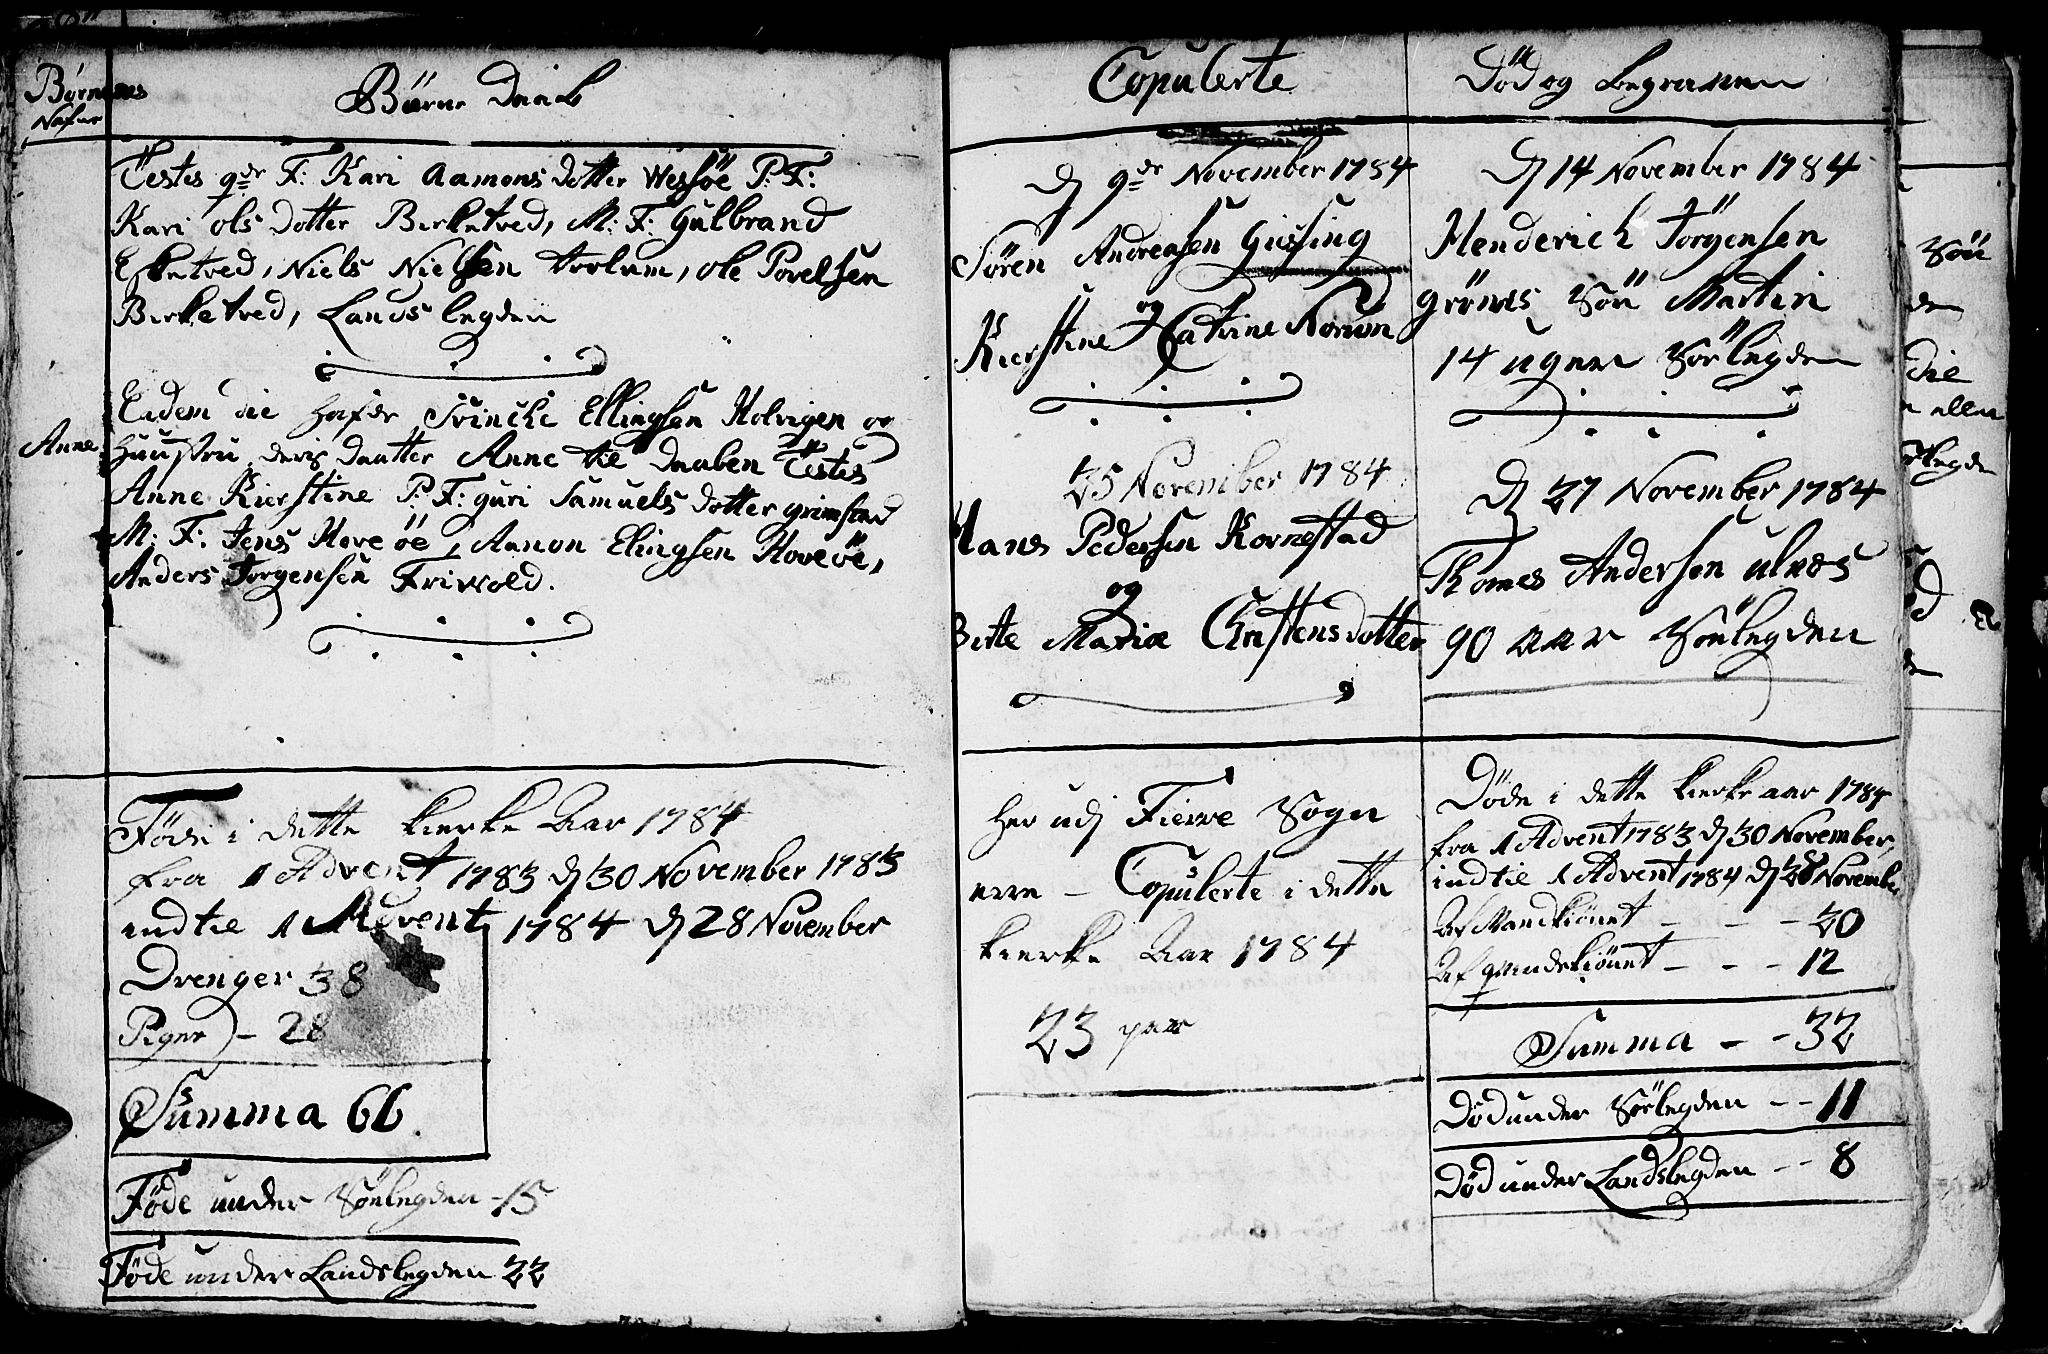 Børnenes
Nafne
Børne Daab
Testes qdr F: Kari Aamons dotter Wessøe P: F:
Kari ols dotter Birketved, M: F: Gulbrand
Esketved, Niels Nielsen, ole Povelsen
Birketved, Lands legden
Eadem die hafde Svinche Ellingsen Holvigen og
Anne
Huustru deris daatter Anne til daaben Testes
Anne Kierstine P: F: guri Samuels dotter grimstad
M: F: Jens Hove øe, Aanon Elingsen Hoveöe,
Anders Jörgensen Friwold.
Föde i dette kierke Aar 1784
fra 1 Advent 1783 d 30 November 1783
indtil 1 Advent 1784 d 28 November
Drenger 38
Piger - 28
Summa 66
Föde under Söelegden - 15
Föde under Landslegden 22
Copulerte
d 9de November 1784
Sören Andreasen Gissing
og
Kierstine Catrine Norum
25 November 1784
Hans Pedersen Kornestad
og
Birte Maria Christensdotter
her udj Fierre Sogn
erre - Copulerte i dette
kierke Aar 1784
23 par
Död og begraven
d 14 November 1784
Henderich Jörgensen
grönes Sön Martin
14 uger Söelegden
d 27 November 1784
Thomes Andersen ulnæs
90 aar Söelegden
Döde i dette kierke aar 1784
fra 1 Advent 1783 d 30 November,
indtil 1 Advent 1784 d 28 Novembe
Af Mandkiönet - - - 20
Af qvindekiönet - - - 12
Summa - - 32
Död under Söelegden - - 11
Död under Landslegden - - 8
Sön
die